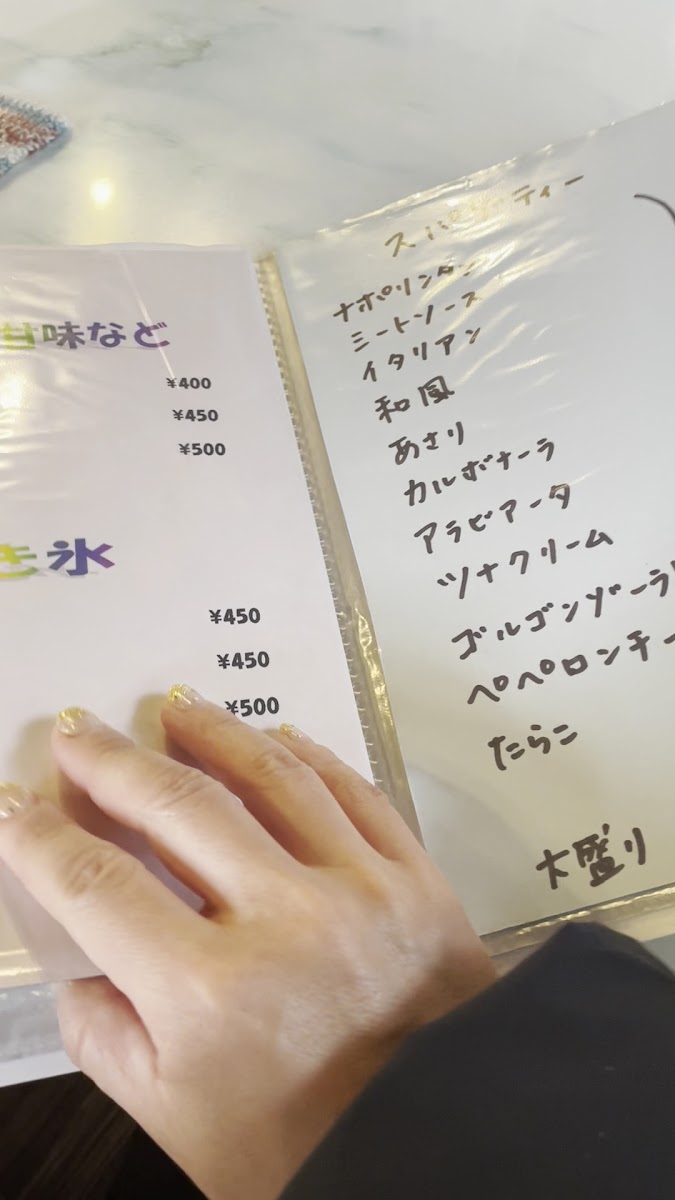 甘味など
¥400
¥450
¥500
き氷
¥450
¥450
¥500
スパゲティー
ナポリンタン
ミートソース
イタリアン
和風
あさり
カルボナーラ
アラビアータ
ツナクリーム
ゴルゴンゾーラ
ペペロンチー
たらこ
大盛り